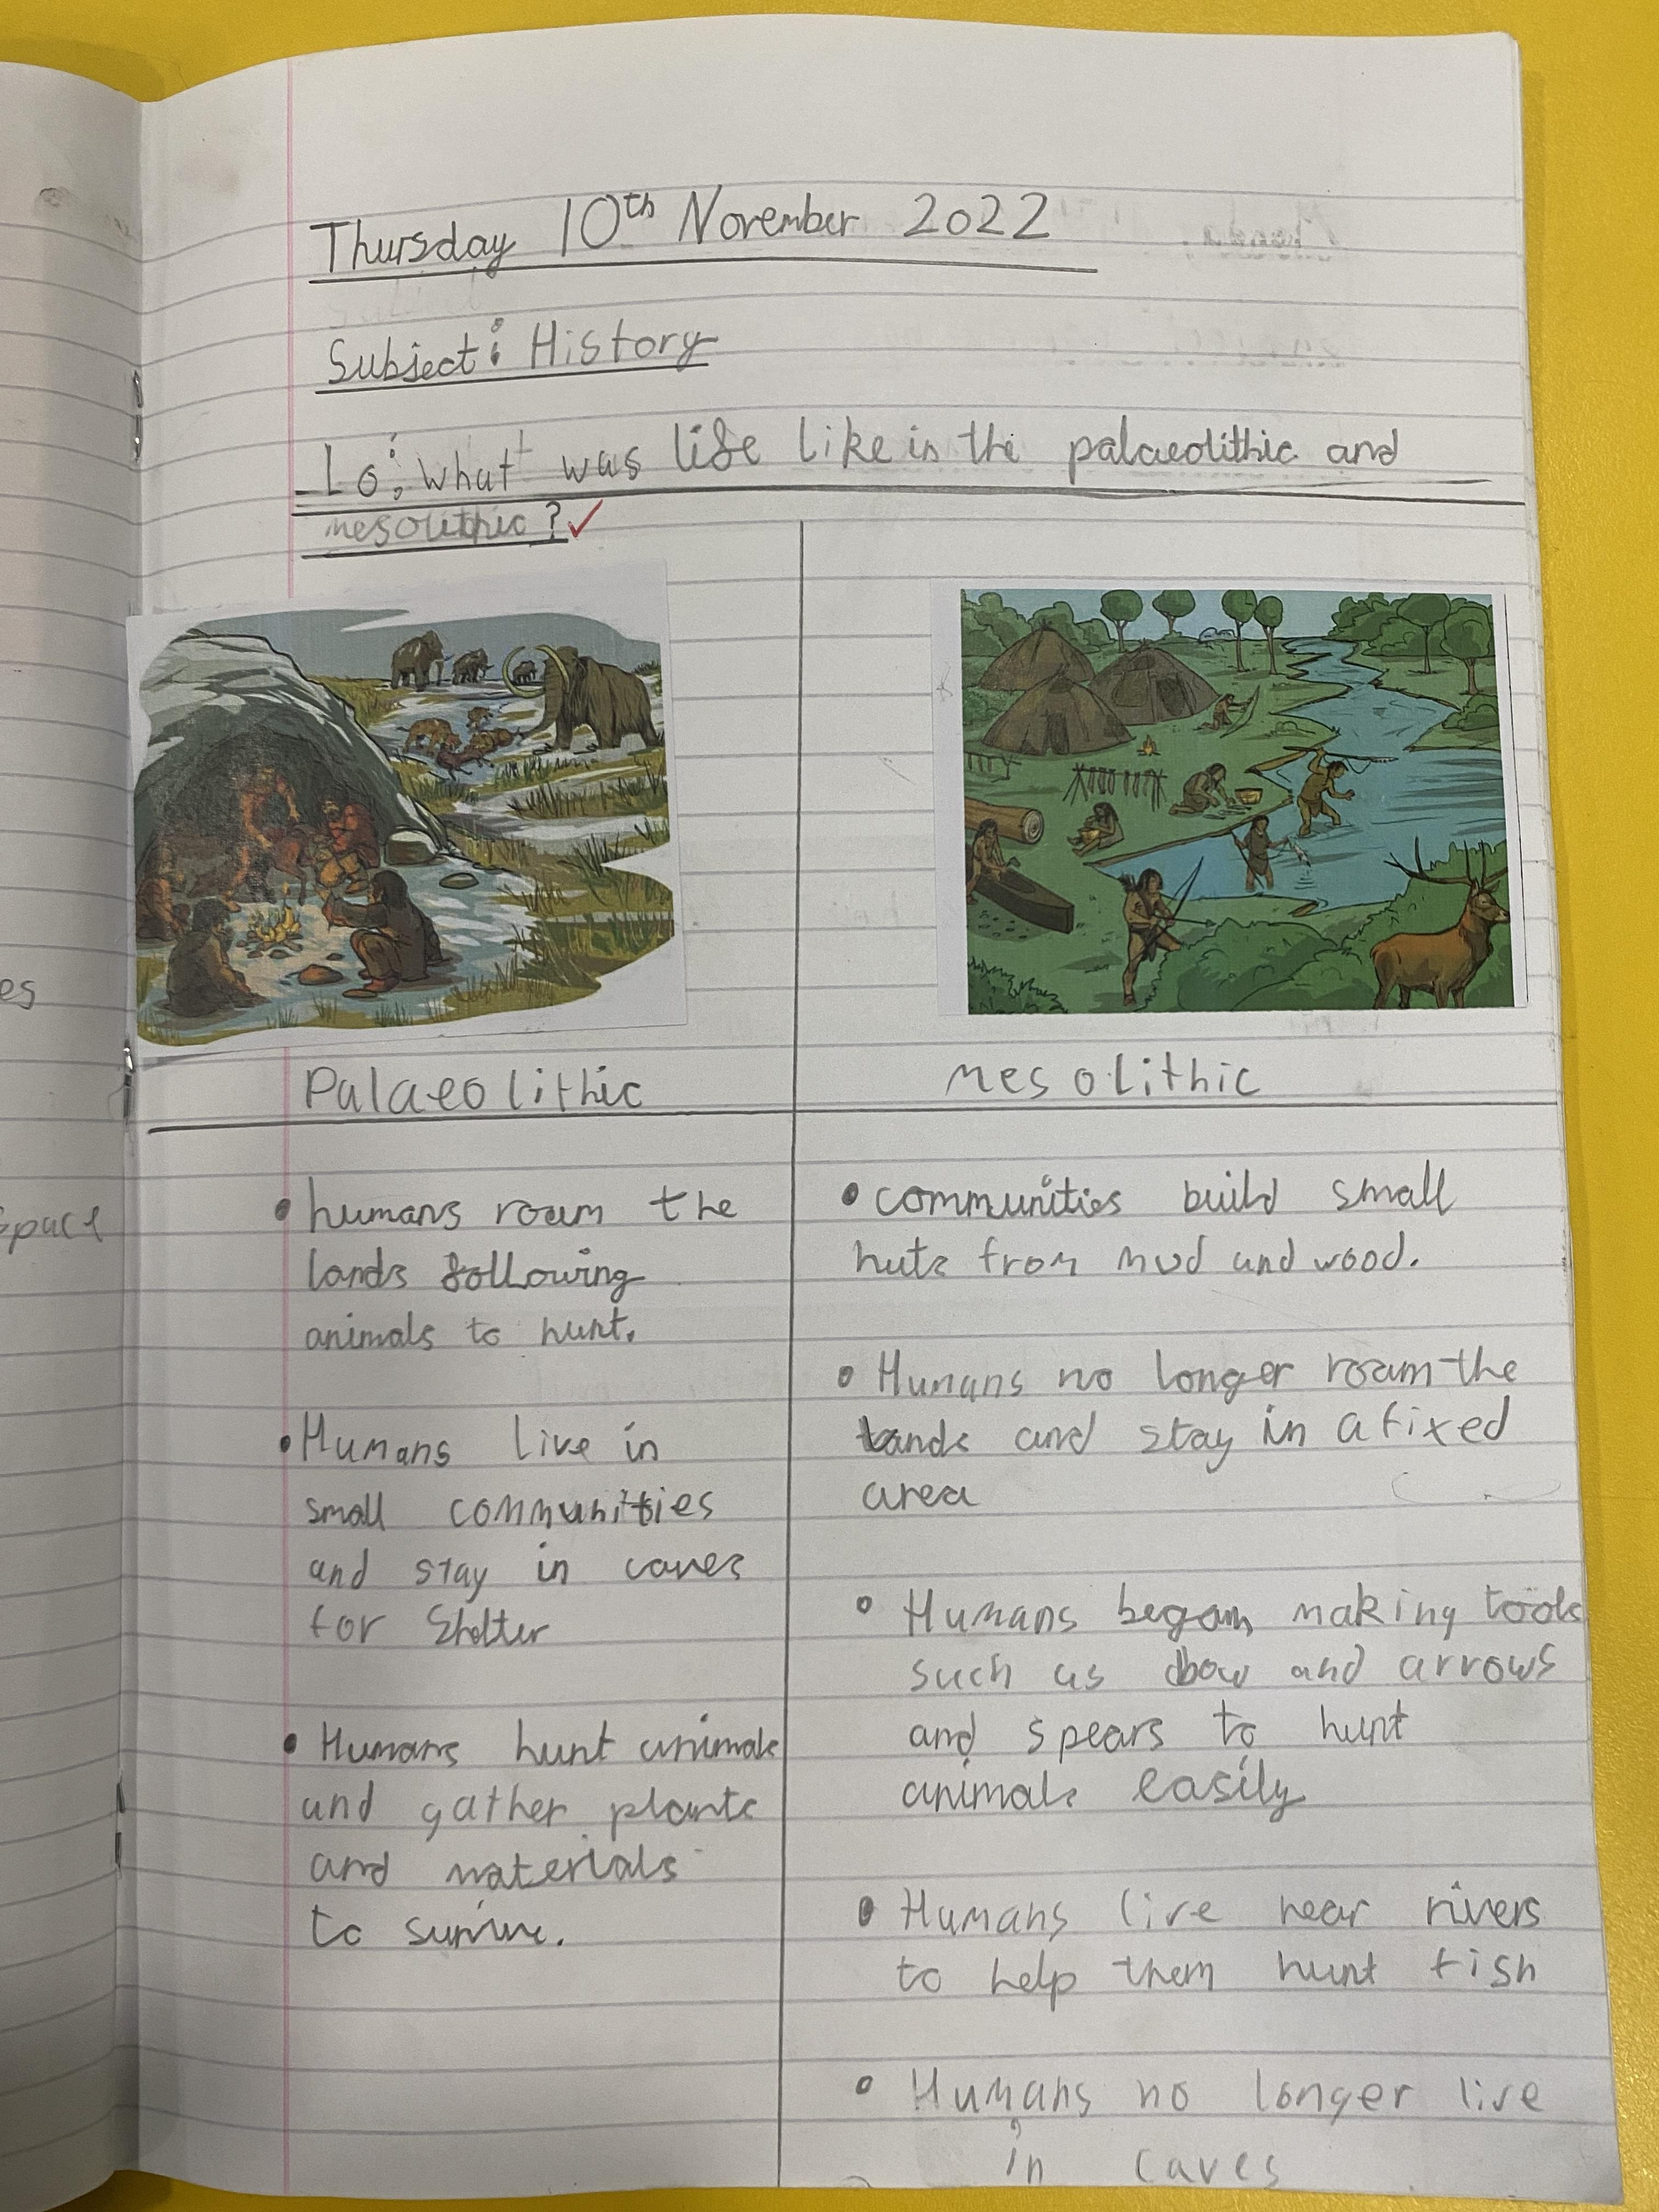 Thursday 10th November 2022
Subject: History
Lo: What was life like in the palaeolithic and
mesolithic?
Palaeolithic
mesolithic
• humans roam the
lands following
animals to hunt.
• Humans live in
small communities
and stay in caves
for Shelter
• Humans hunt animals
and gather plants
and materials
to survive.
• communities build small
huts from mud and wood.
• Humans no longer roam the
lands and stay in a fixed
area
• Humans began making tools
such as bow and arrows
and spears to hunt
animals easily
• Humans live near rivers
to help them hunt fish
• Humans no longer live
in caves
es
space